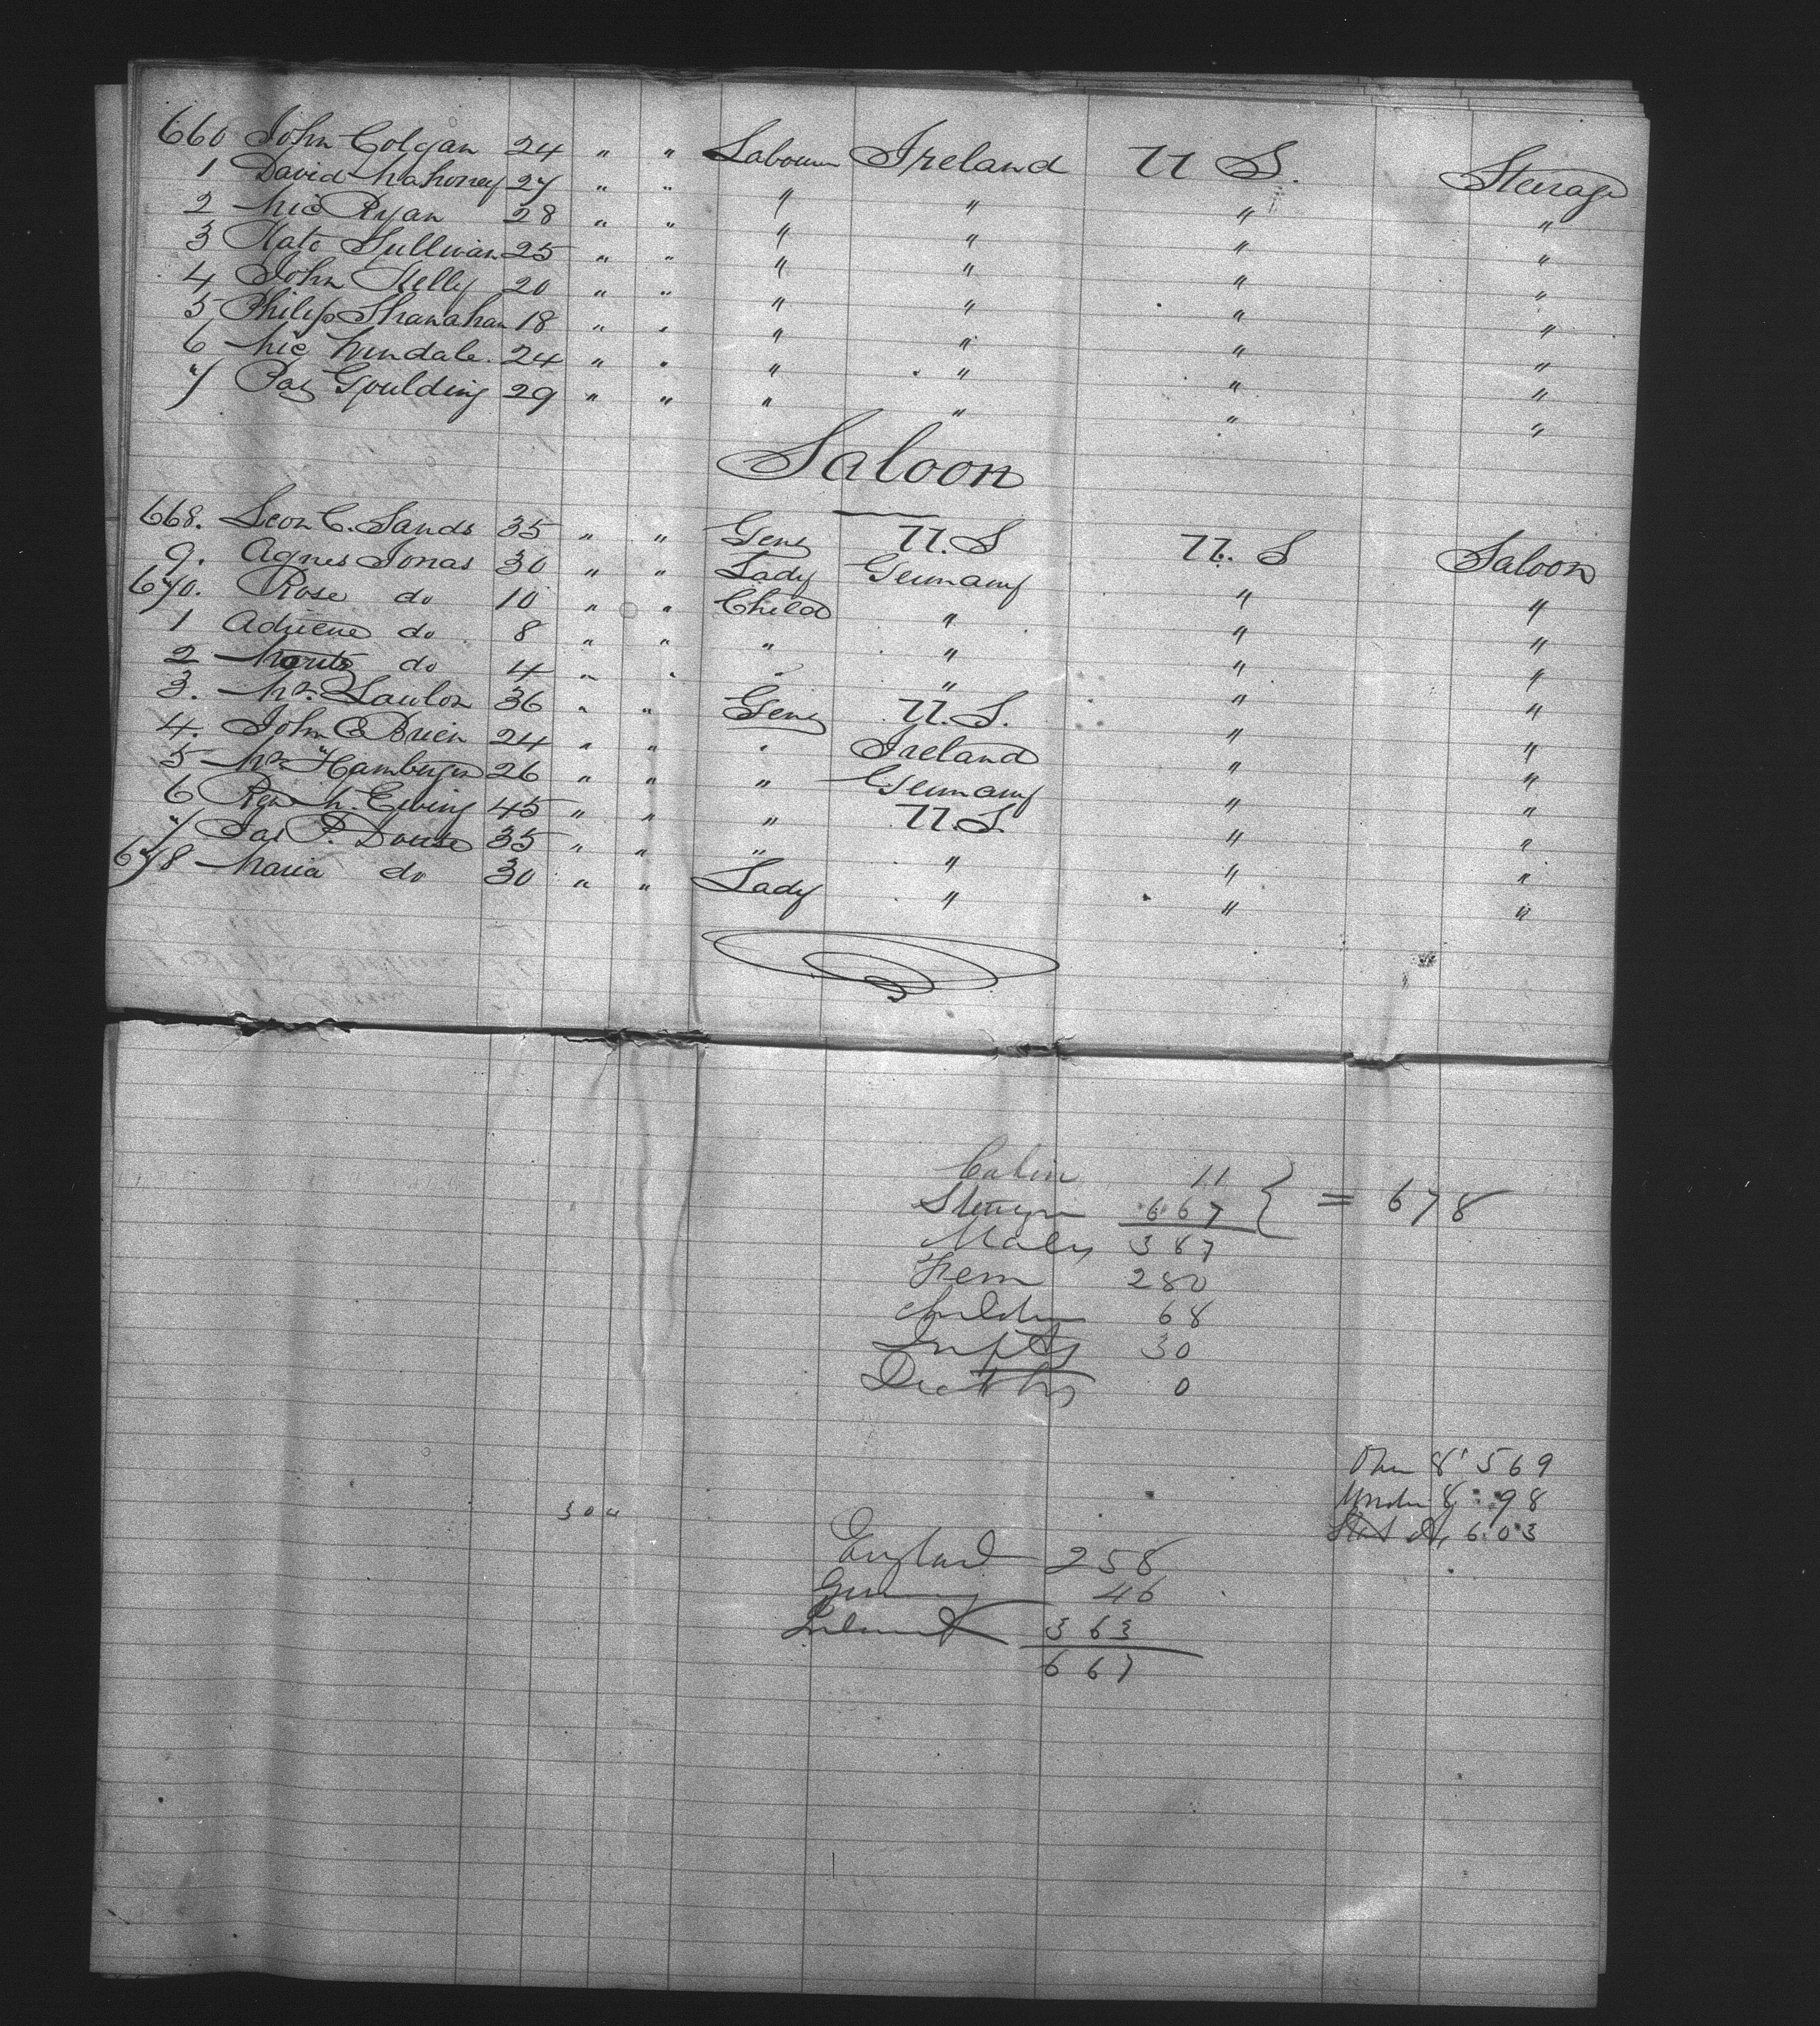 660 John Colgan 24 " " Labourer Ireland U S. Steerage
1 David Mahoney 27 " " " " " "
2 Mic Ryan 28 " " " " " "
3 Kate Sullivan 25 " " " " " "
4 John Kelly 20 " " " " " "
5 Philip Shanahan 18 " " " " " "
6 Mic 24 " " " " " "
7 Pat Goulding 29 " " " " " "
Saloon
668. Leon C. Sands 35 " " Gent U.S U.S Saloon
9. Agnes Jonas 30 " " Lady Germany " "
670. Rose do 10 " " Child " " "
1 Adriene do 8 " " " " " "
2 do 4 " " " " " "
3. Mr. Lawlor 36 " " Gent U.S. " "
4. John O Brien 24 " " " Ireland " "
5 Mr. Hamburger 26 " " " Germany " "
6 Rev M. Ewing 45 " " " U.S. " "
7 Jas P. 35 " " " " " "
678 Maria do 30 " " Lady " " "
Cabin 11
Steerage 667 } = 678
Males 387
Fem 280
children 68
Infts 30
Deaths 0
Over 8 569
Under 8 98
603
304
England 258
Germany 46
Ireland 363
667